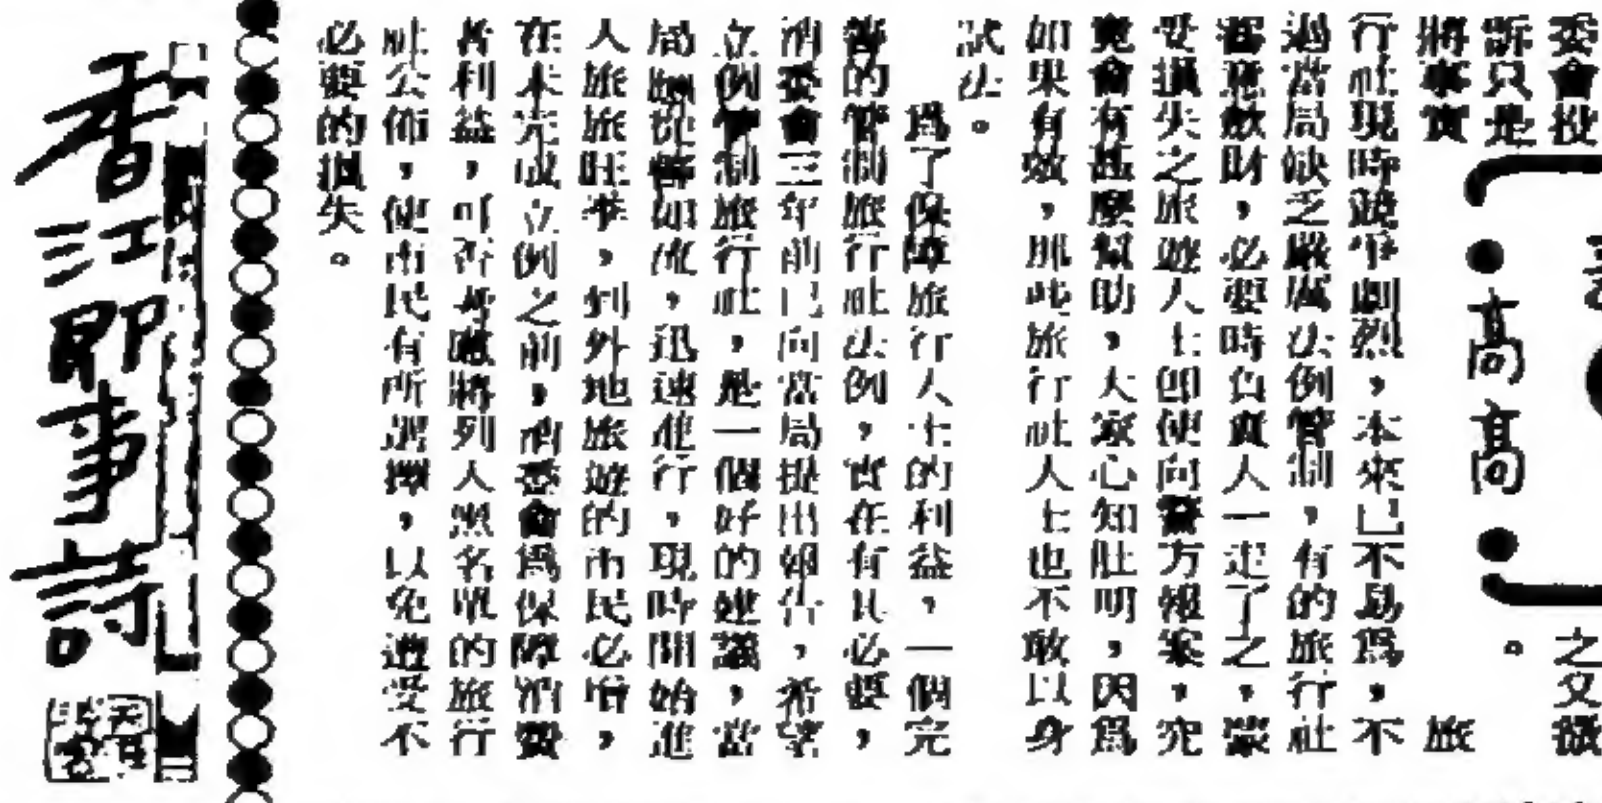 委會投
訴只是
將事實
之又
。
旅
行社現時競爭劇烈，本來已不易爲，不
過當局缺乏嚴厲法例管制，有的旅行社
蓄意斂財，必要時負責人一走了之，蒙
受損失之旅遊人士卽使向警方報案，究
竟會有甚麼幫助，大家心知肚明，因爲
如果有效，那些旅行社人士也不敢以身
試法。
爲了保障旅行人士的利益，一個完
善的管制旅行社法例，實在有其必要，
消委會三年前已向當局提出報告，希望
立例管制旅行社，是一個好的建議，當
局應從善如流，迅速進行，現時開始進
入旅旅旺季，到外地旅遊的市民必增，
在未完成立例之前，消委會爲保障消費
者利益，可否考慮將列入黑名單的旅行
社公佈，使市民有所選擇，以免遭受不
必要的損失。
高高
香江即事詩